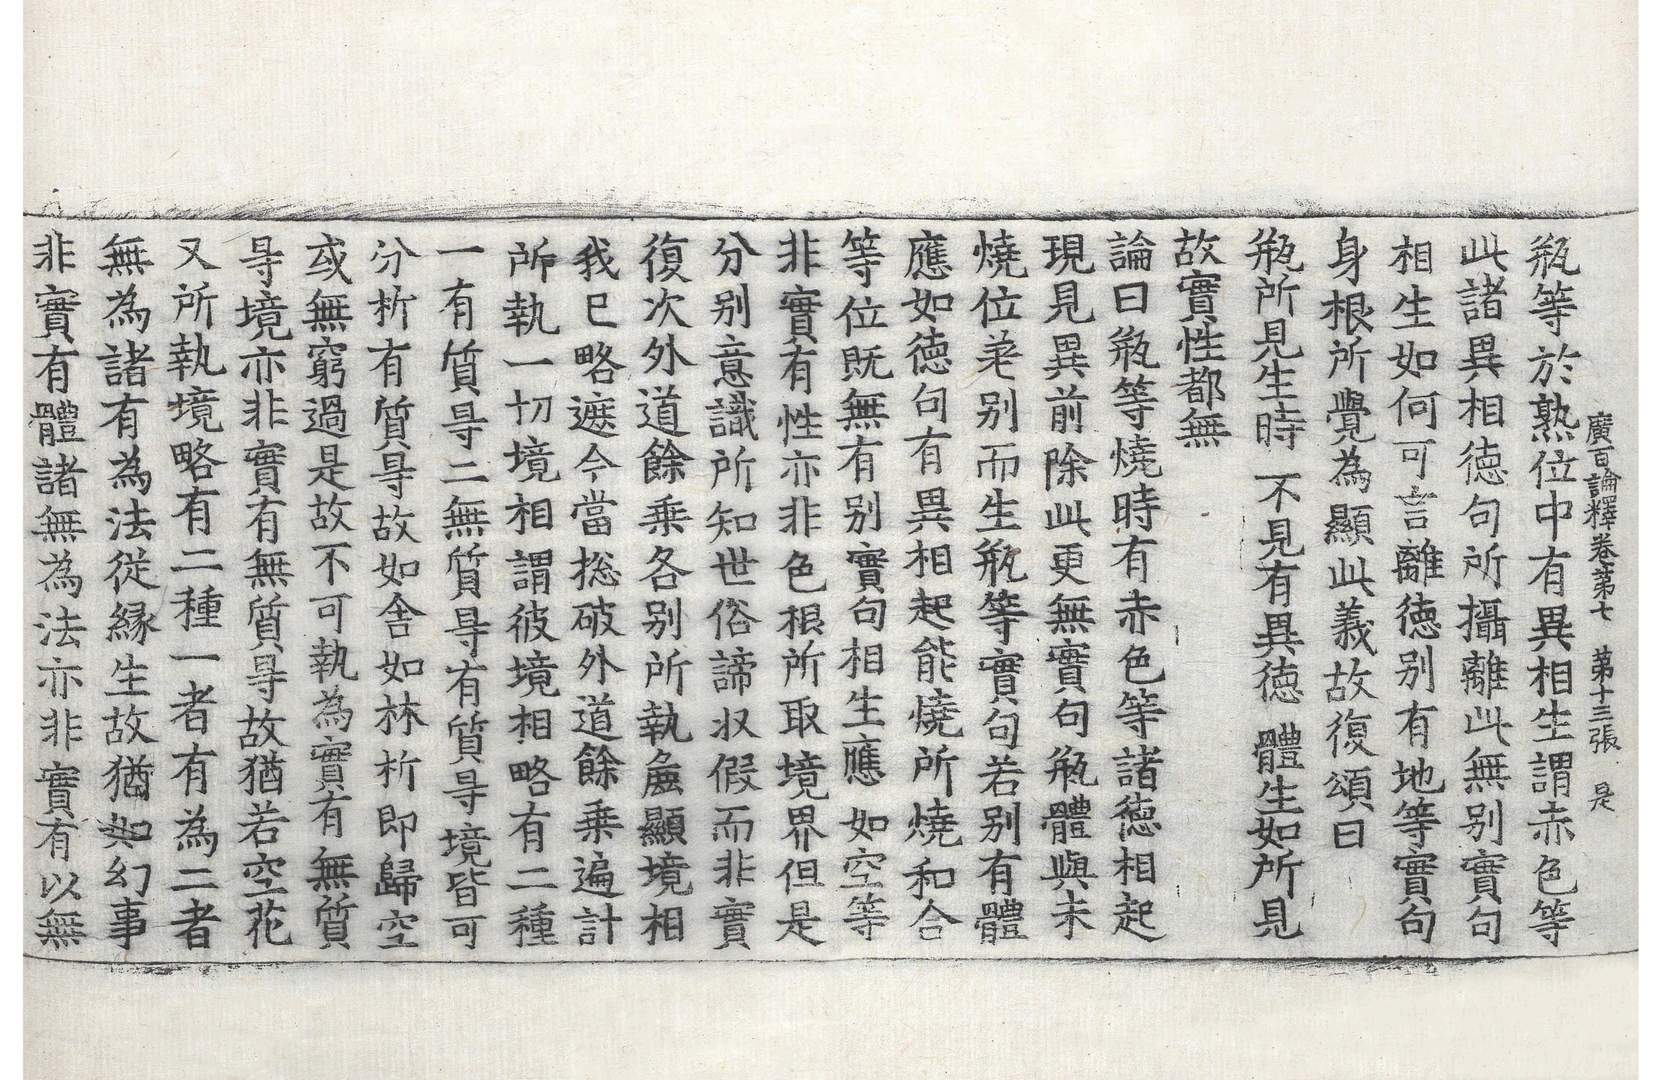 廣百論釋卷第七 第十三張 是
瓶等於熟位中有異相生謂赤色等
此諸異相徳句所攝離此無别實句
相生如何可言離徳别有地等實句
身根所覺為顯此義故復頌曰
瓶所見生時 不見有異徳 體生如所見
故實性都無
論曰瓶等燒時有赤色等諸徳相起
現見異前除此更無實句瓶體與未
燒位差别而生瓶等實句若别有體
應如徳句有異相起能燒所燒和合
等位既無有别實句相生應如空等
非實有性亦非色根所取境界但是
分别意識所知世俗諦収假而非實
復次外道餘乗各别所執麁顯境相
我已略遮今當捴破外道餘乗遍計
所執一切境相謂彼境相略有二種
一有質㝵二無質㝵有質㝵境皆可
分析有質㝵故如舎如林析即歸空
或無窮過是故不可執為實有無質
㝵境亦非實有無質㝵故猶若空花
又所執境略有二種一者有為二者
無為諸有為法從縁生故猶如幻事
非實有體諸無為法亦非實有以無